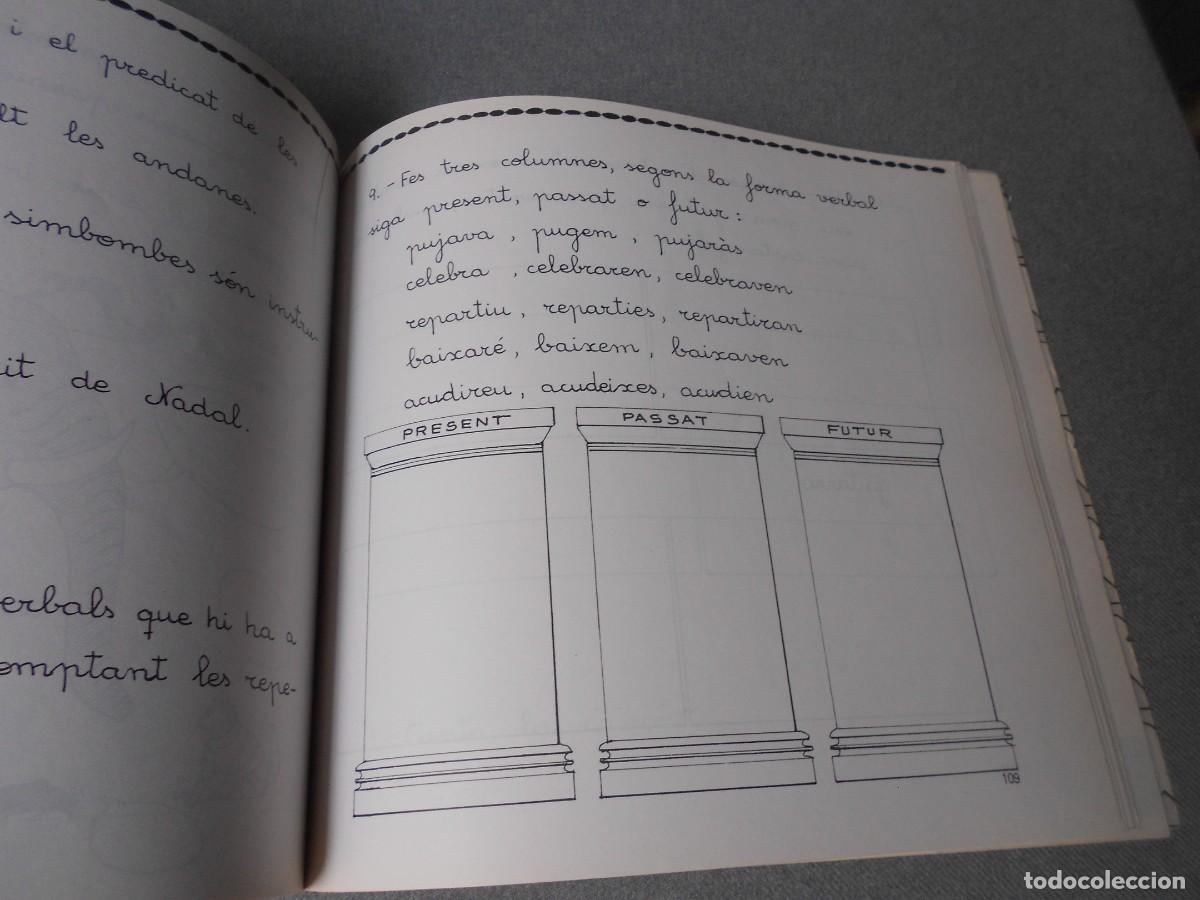 i el predicat de les
lt les andanes.
simbombes són instru-
it de Nadal.
erbals que hi ha a
emptant les repe-
9.-Fes tres columnes, segons la forma verbal
siga present, passat o futur:
pujava, pugem, pujaràs
celebra, celebraren, celebraven
repartiu, reparties, repartiran
baixaré, baixem, baixaven
acudireu, acudeixes, acudien
PRESENT PASSAT FUTUR
109
todocoleccion